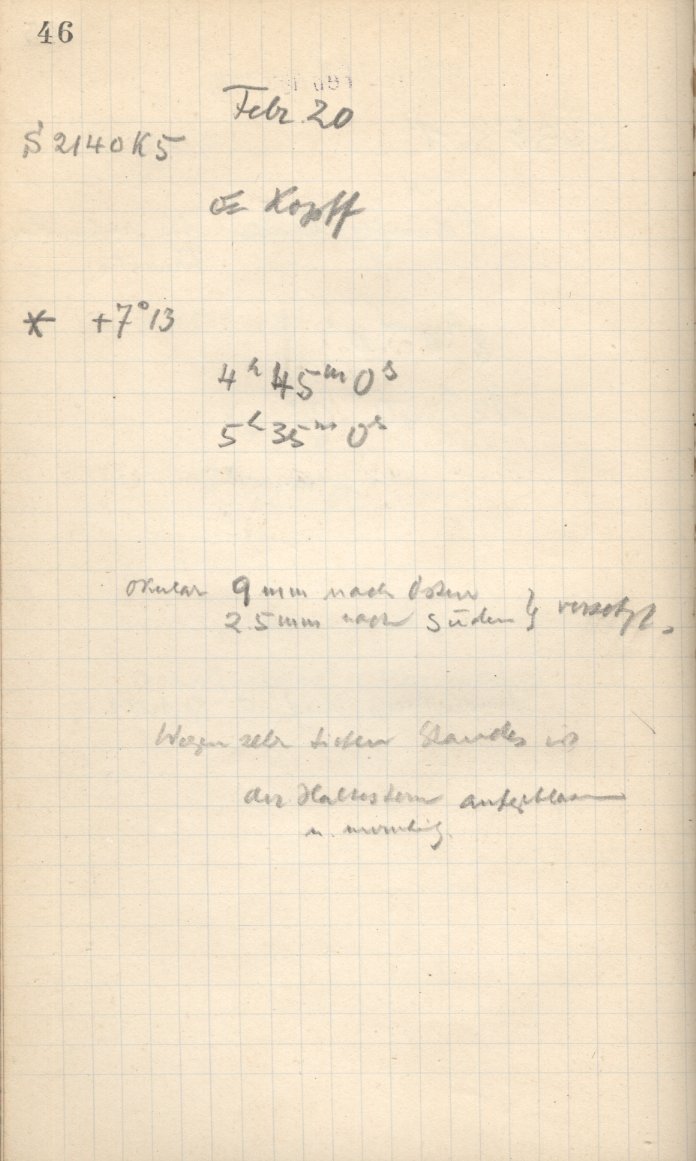 46
Febr. 20
S 2140 K5
Kopff
* +7° 13
4h 45m 0s
5h 35m 0s
Okular 9 mm nach Osten
2.5 mm nach Süden } versetzt.
Wegen sehr tiefen Standes ist
der Haltestern aufgeblasen
u. unruhig.